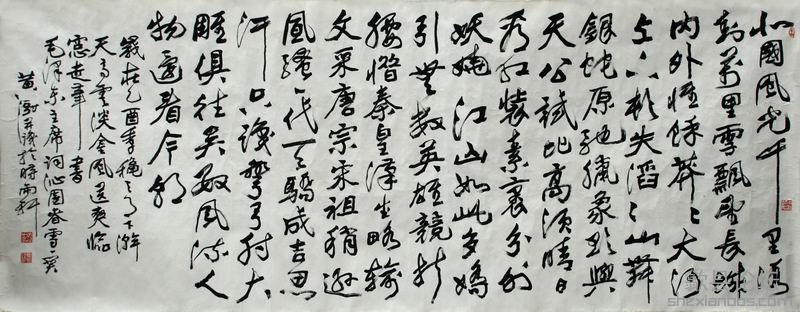 北國風光千里冰
封萬里雪飄望長城
内外惟餘莽莽大河
上下頓失滔滔山舞
銀蛇原馳蠟象欲與
天公試比高須晴日
看紅裝素裹分外
妖嬈江山如此多嬌
引無數英雄競折
腰惜秦皇漢武略輸
文采唐宗宋祖稍遜
風騷一代天驕成吉思
汗只識彎弓射大
雕俱往矣數風流人
物還看今朝
歲在乙酉季穐之月下澣
天高雲淡金風送爽臨
窓走筆書
毛澤東主席詞沁園春雪一
黄澍於時雨軒
shexianbbs.com